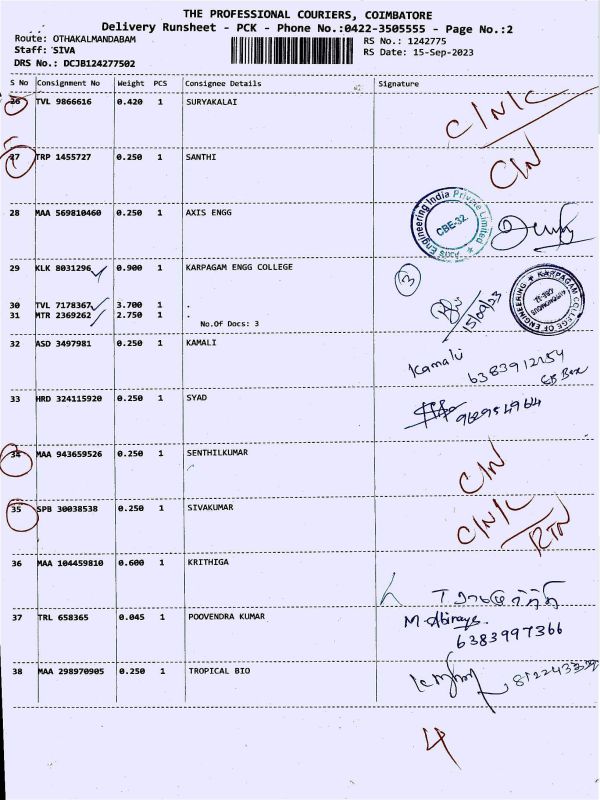 THE PROFESSIONAL COURIERS, COIMBATORE
Delivery Runsheet - PCK - Phone No.:0422-3505555 - Page No.:2
Route: OTHAKALMANDABAM
RS No.: 1242775
Staff: SIVA
RS Date: 15-Sep-2023
DRS No.: DCJB124277502
S No Consignment No Weight PCS Consignee Details Signature
26 TVL 9866616 0.420 1 SURYAKALAI C/N/C
27 TRP 1455727 0.250 1 SANTHI C/N
28 MAA 569810460 0.250 1 AXIS ENGG
Axis Engineering India Private Limited
CBE-32
29 KLK 8031296 0.900 1 KARPAGAM ENGG COLLEGE 3
15/09/23
KARPAGAM COLLEGE OF ENGINEERING
30 TVL 7178367 3.700 1 .
31 MTR 2369262 2.750 1 .
No.Of Docs: 3
32 ASD 3497981 0.250 1 KAMALI Kamali
EB Box
33 HRD 324115920 0.250 1 SYAD
34 MAA 943659526 0.250 1 SENTHILKUMAR C/N
35 SPB 30038538 0.250 1 SIVAKUMAR C/N/C
RTN
36 MAA 104459810 0.600 1 KRITHIGA
37 TRL 658365 0.045 1 POOVENDRA KUMAR
6383997366
38 MAA 298970905 0.250 1 TROPICAL BIO
4